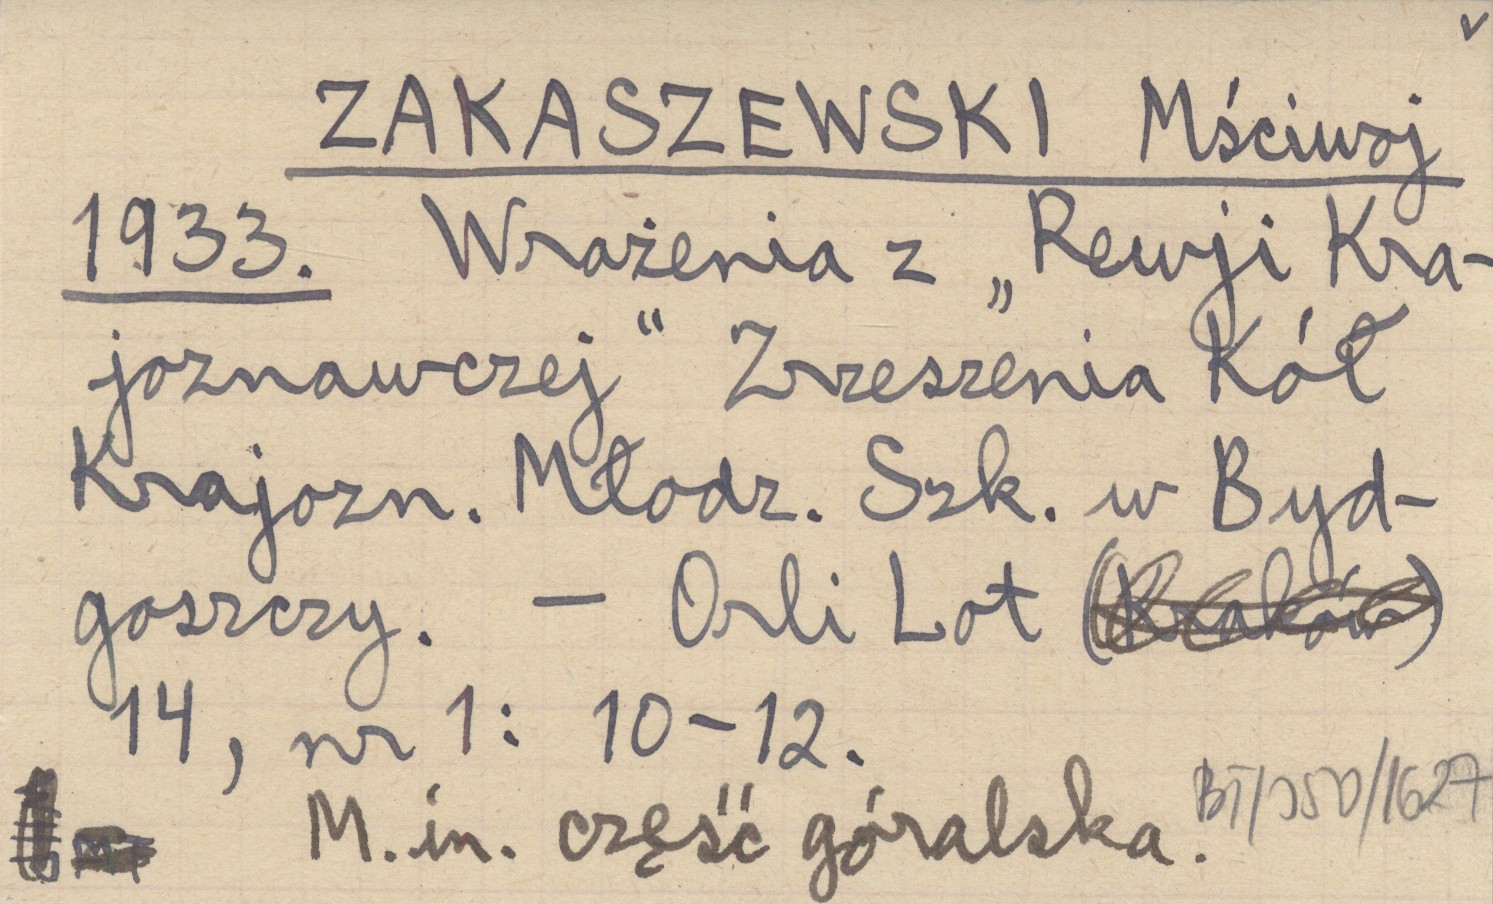 ZAKASZEWSKI Mściwoj
1933. Wrażenia z „Rewji Kra-
joznawczej“ Zrzeszenia Kół
Krajozn. Młodz. Szk. w Byd-
goszczy. – Orli Lot (Kraków)
14, nr 1: 10-12.
M. in. część góralska.